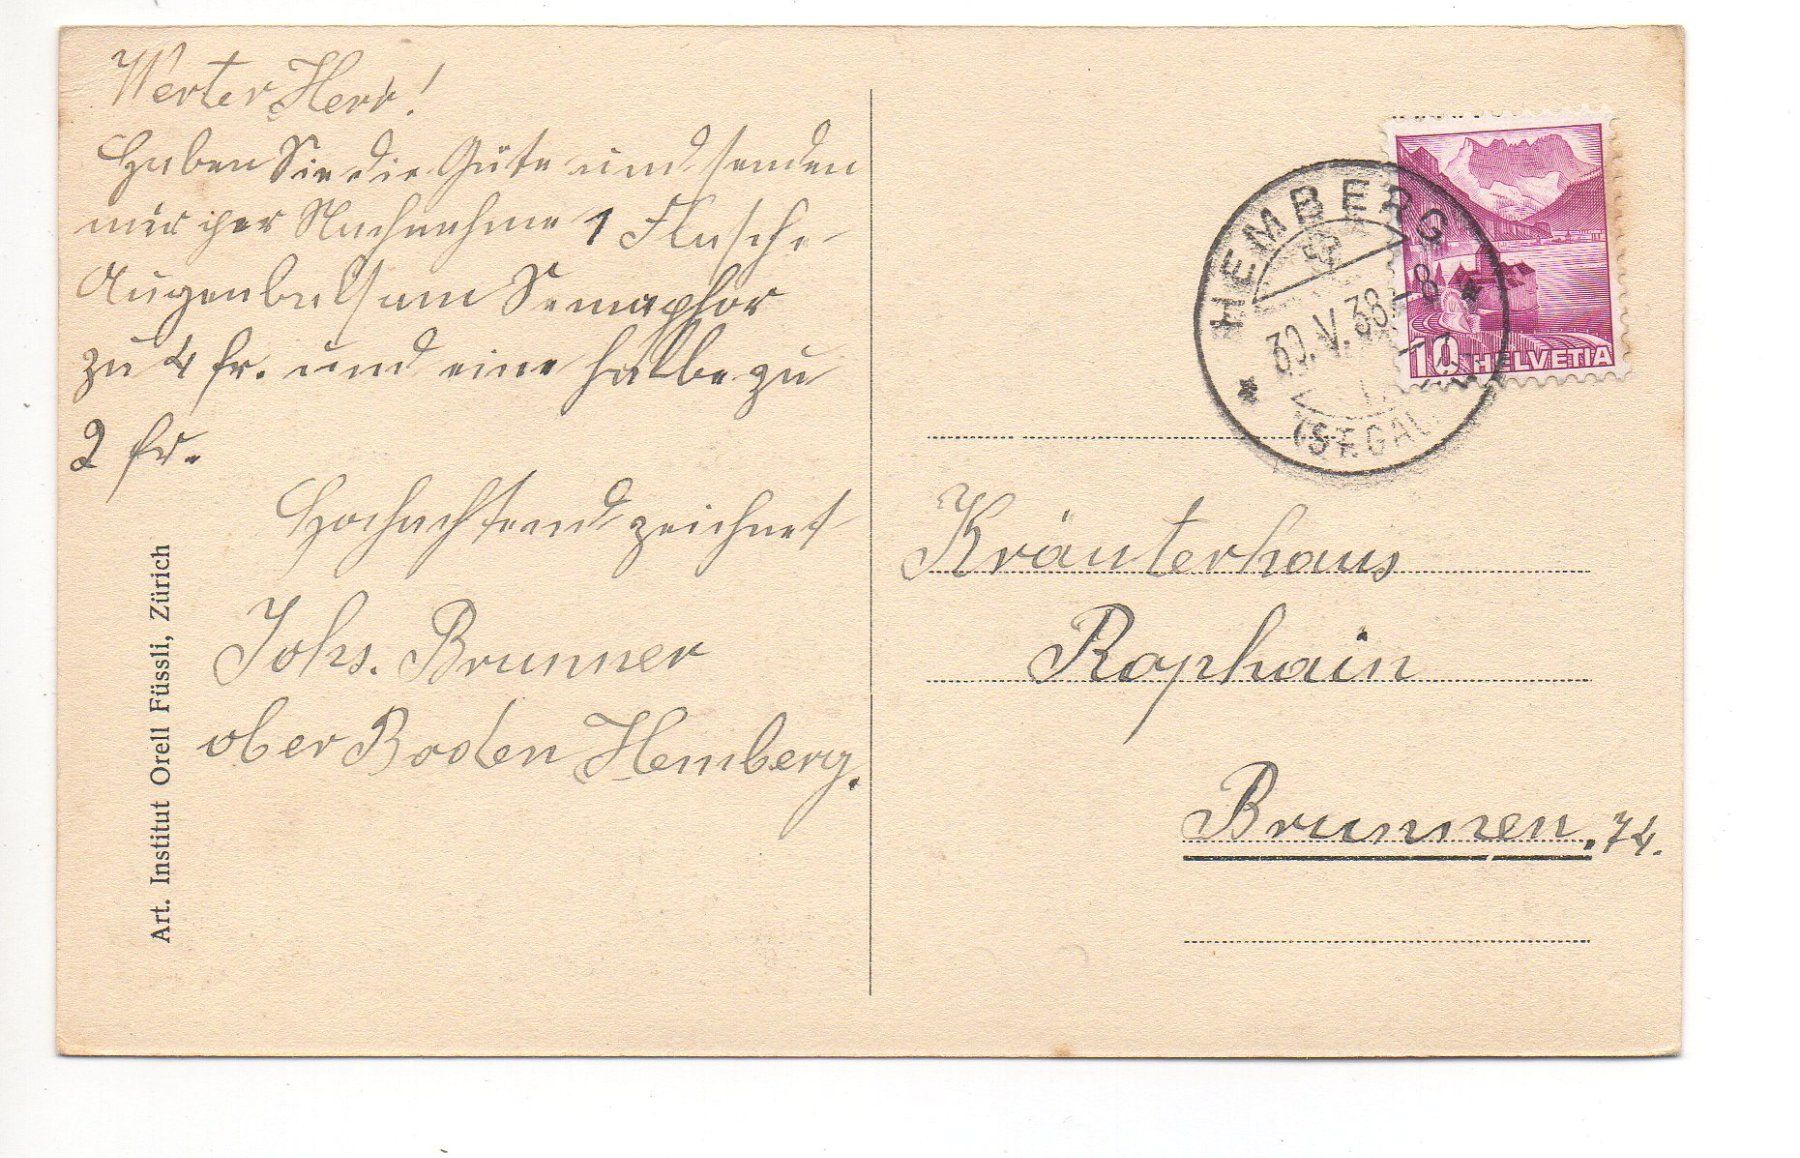 Werter Herr!
Haben Sie die Güte und senden
mir per Nachnahme 1 Flasche
Augenbalsam Semaphor
zu 4 fr. und eine halbe zu
2 fr.
Hochachtend zeichnet
Johs. Brunner
ober Boden Hemberg.
Art. Institut Orell Füssli, Zürich
HEMBERG
30.V.38.–8
(ST. GAL
10 HELVETIA
Kräuterhaus
Rophain
Brunnen. 74.